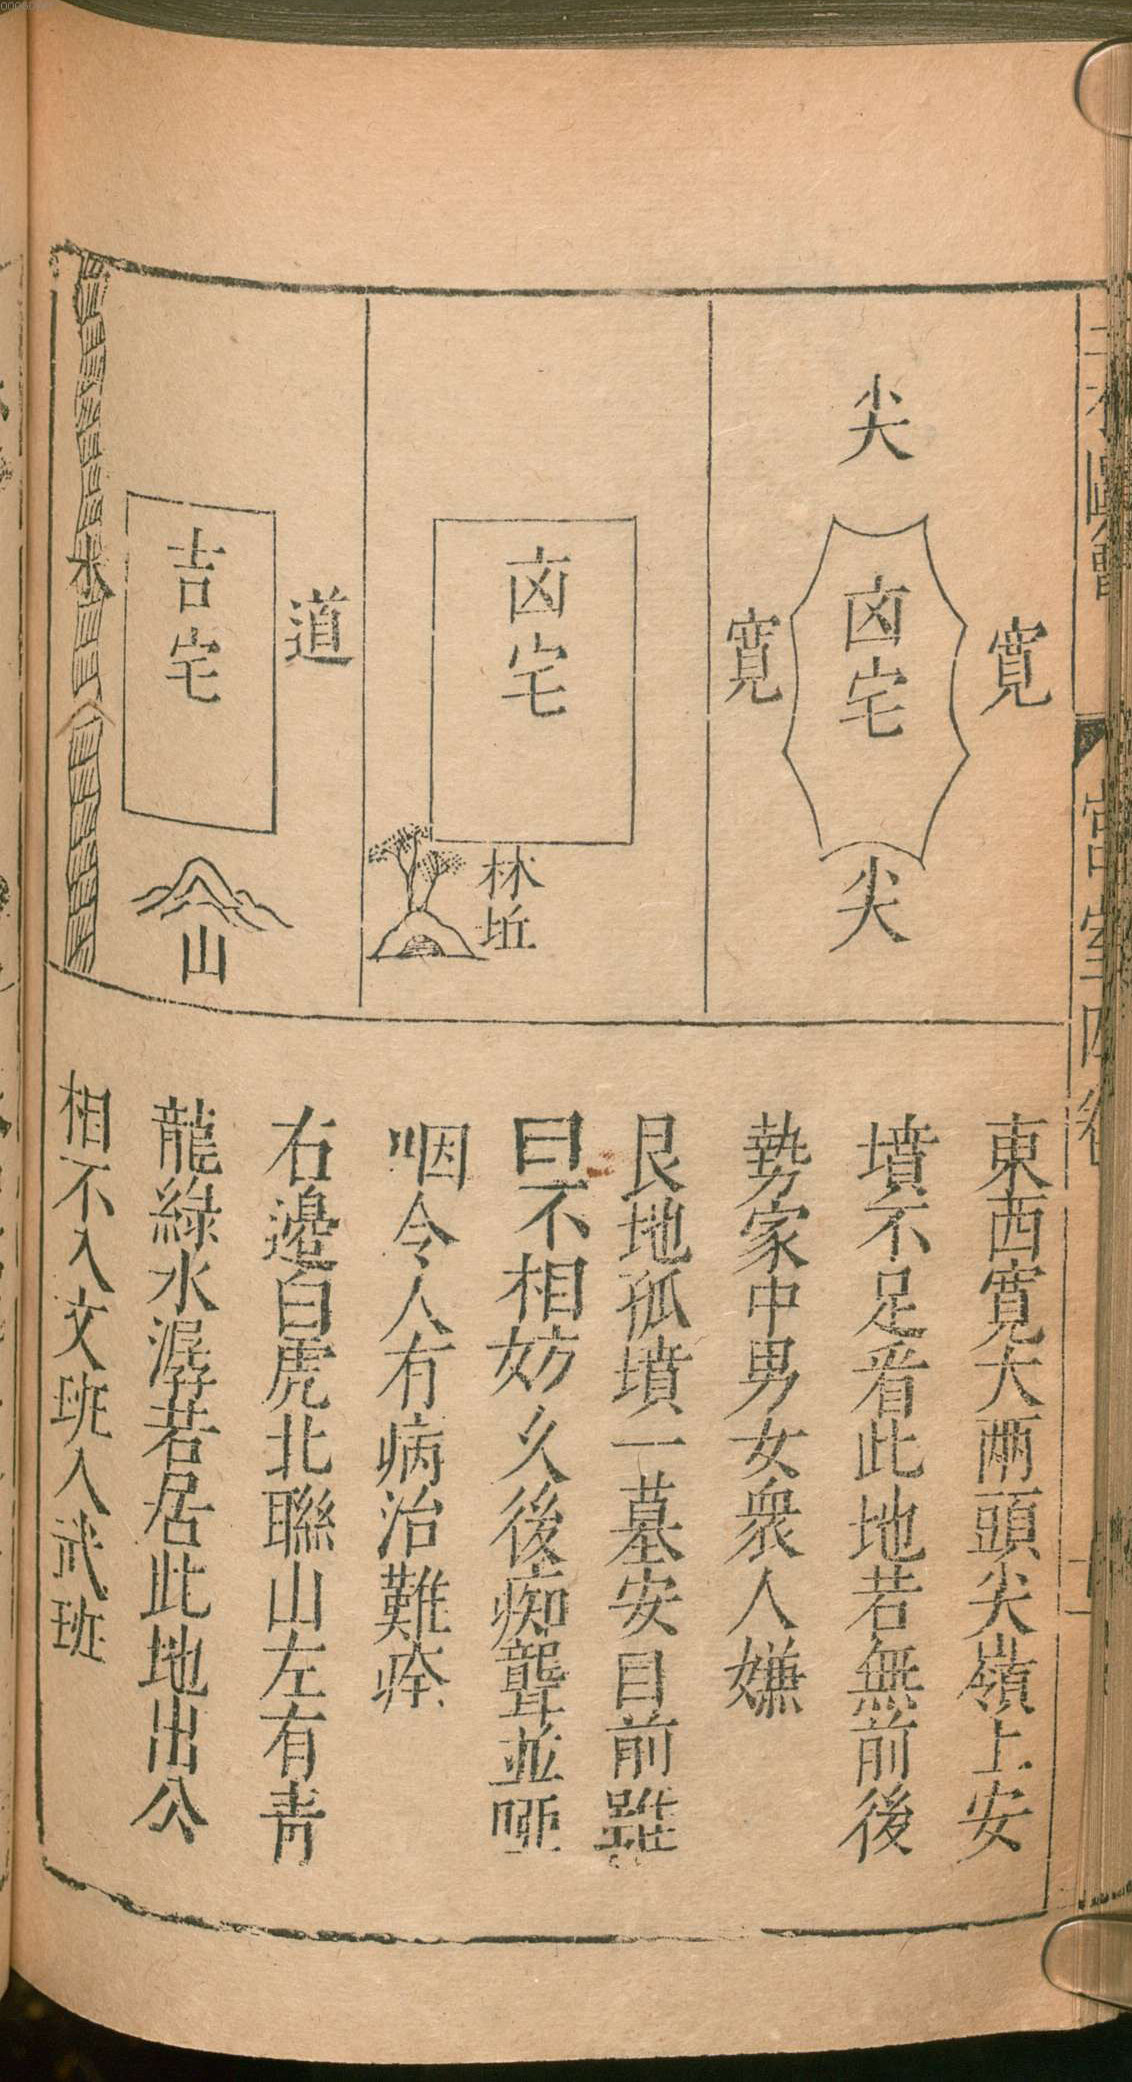 三才圖會
宮室四卷
尖
寬
凶宅
寬
尖
東西寬大兩頭尖嶺上安
墳不足看此地若無前後
勢家中男女衆人嫌
凶宅
林坵
艮地孤墳一墓安目前雖
曰不相妨久後痴聾並啞
咽令人有病治難痊
道
吉宅
山
水
右邊白虎北聯山左有青
龍綠水潺若居此地出公
相不入文班入武班